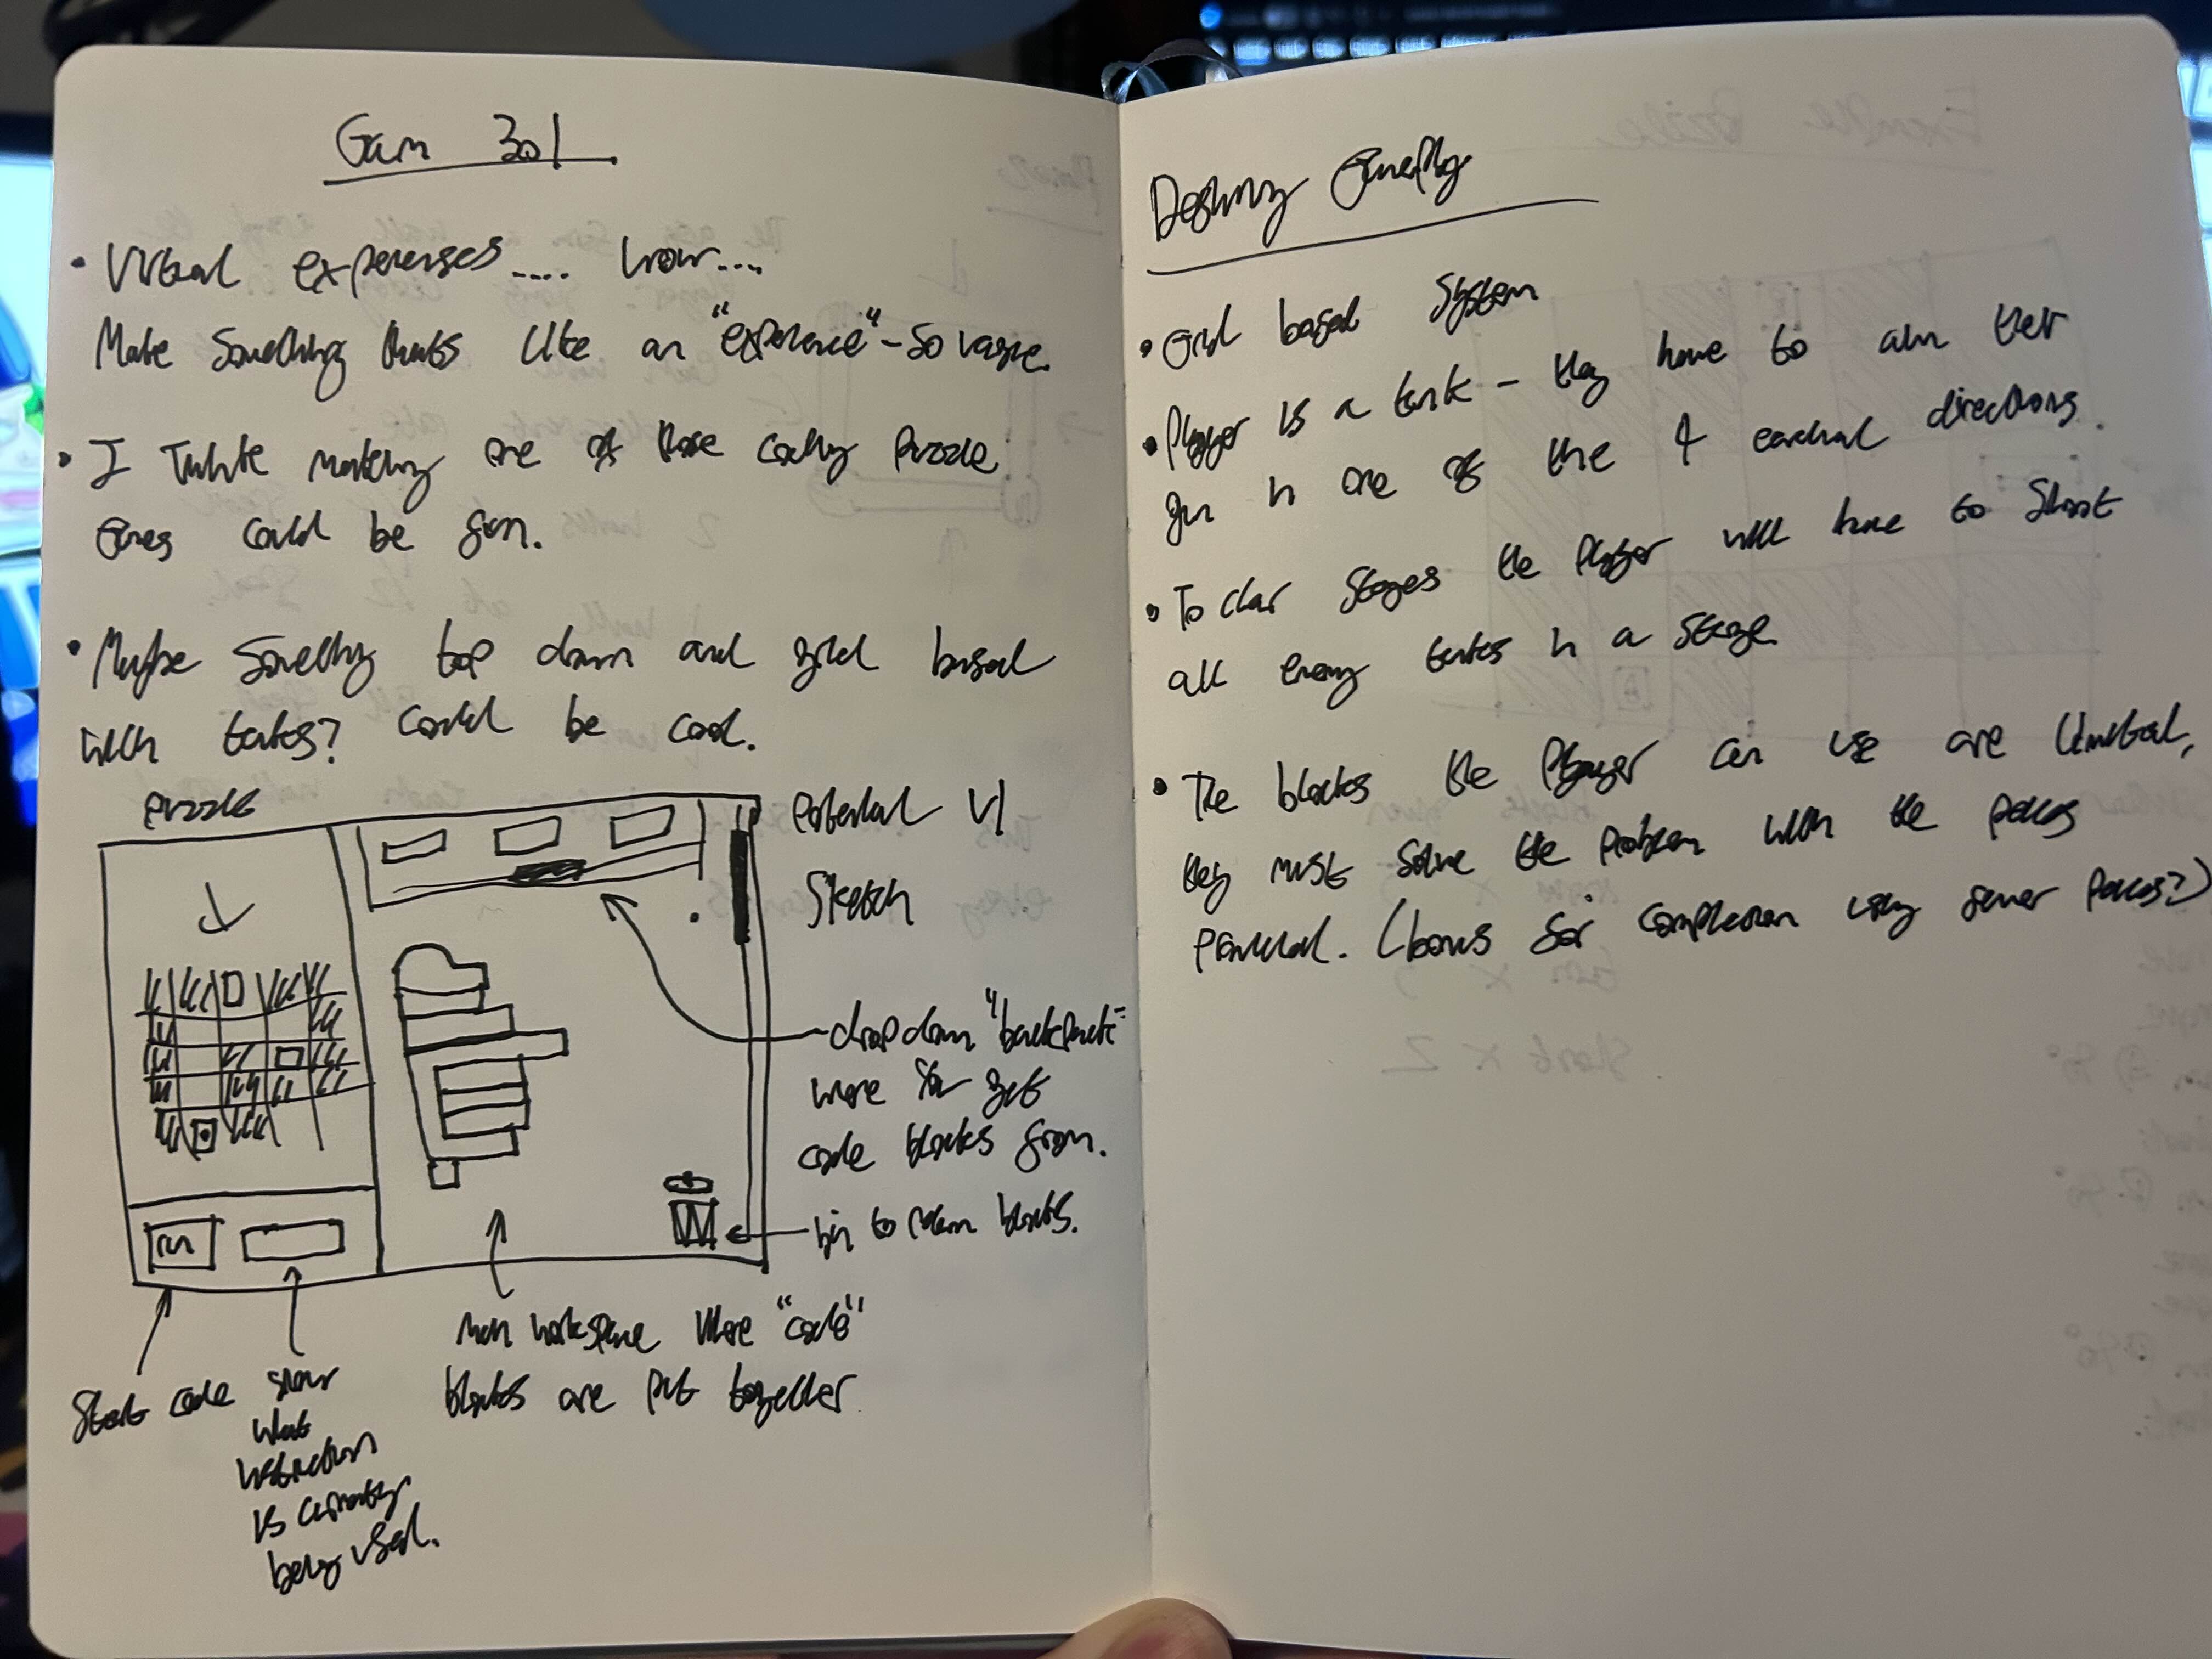 Gam 301
• Virtual experiences.... wow....
Make something thats like an "experience" - so vague.
• I think making one of those coding puzzle
games could be fun.
• Maybe something top down and grid based
with tanks? Could be cool.
puzzle
Potential V1
Sketch
drop down "backpack"
where you get
code blocks from.
bin to return blocks.
run
Start code
show
what
instruction
is currently
being used.
main workspace where "code"
blocks are put together
Designing Gameplay
• Grid based system
• Player is a tank - they have to aim their
gun in one of the 4 cardinal directions.
• To clear stages the player will have to shoot
all enemy tanks in a stage.
• The blocks the player can use are limited,
they must solve the problem with the pieces
provided. (bonus for completion using fewer pieces?)